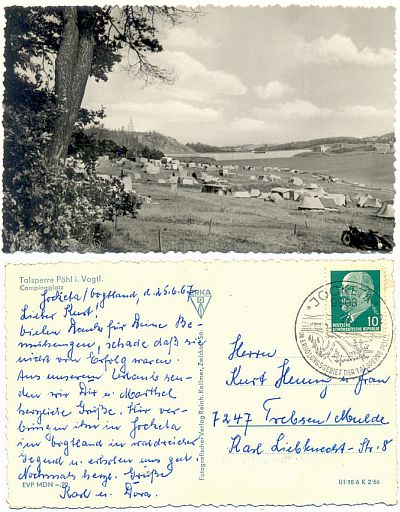 Talsperre Pöhl i. Vogtl.
Campingplatz
Jocketa/Vogtland, d. 25.6.67
Lieber Kurt!
Vielen Dank für Deine Be-
mühungen, schade daß sie
nicht von Erfolg waren.
Aus unserem Urlaub sen-
den wir Dir u.
herzliche Grüße. Wir ver-
bringen ihn in Jocketa
im Vogtland in waldreicher
Gegend u. erholen uns gut.
Nochmals herzl. Grüße
Karl u. Dora.
EVP MDN -,20
ERKA
Fotografischer Verlag Reinh. Kallmer, Zwickau
JOCKETA
DEUTSCHE
DEMOKRATISCHE REPUBLIK
10
Herrn
Kurt Hennig u. Frau
7247 Trebsen/Mulde
Karl Liebknecht-Str. 8
III/18/6 K 2/66